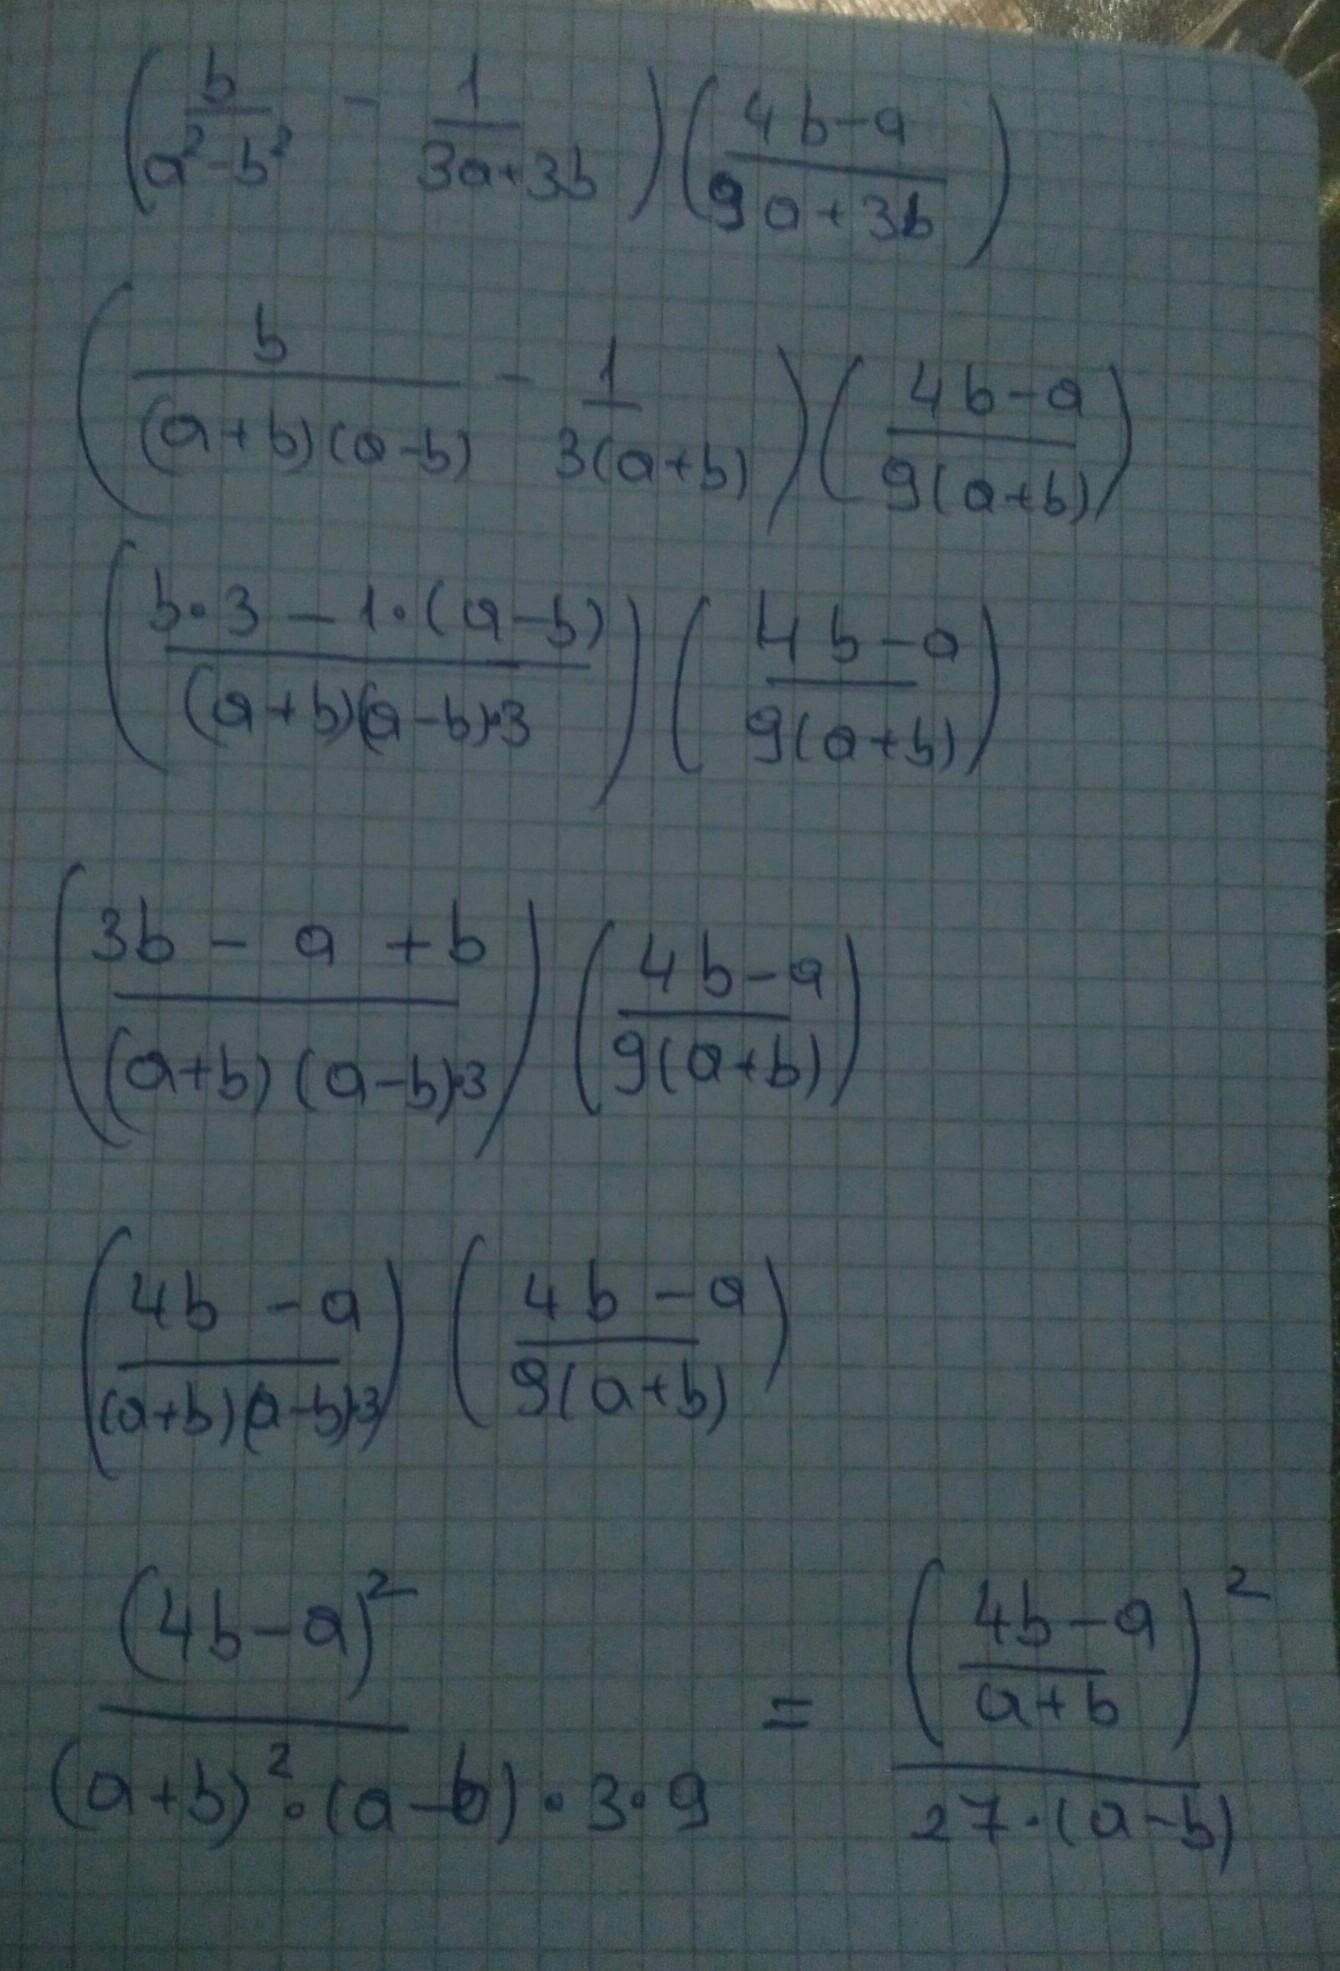 (b/(a²-b²) - 1/(3a+3b))((4b-a)/(9a+3b))
(b/((a+b)(a-b)) - 1/(3(a+b)))((4b-a)/(9(a+b)))
((b·3-1·(a-b))/((a+b)(a-b)·3))((4b-a)/(9(a+b)))
((3b-a+b)/((a+b)(a-b)·3))((4b-a)/(9(a+b)))
((4b-a)/((a+b)(a-b)·3))((4b-a)/(9(a+b)))
(4b-a)²/((a+b)²·(a-b)·3·9) = ((4b-a)/(a+b))²/(27·(a-b))